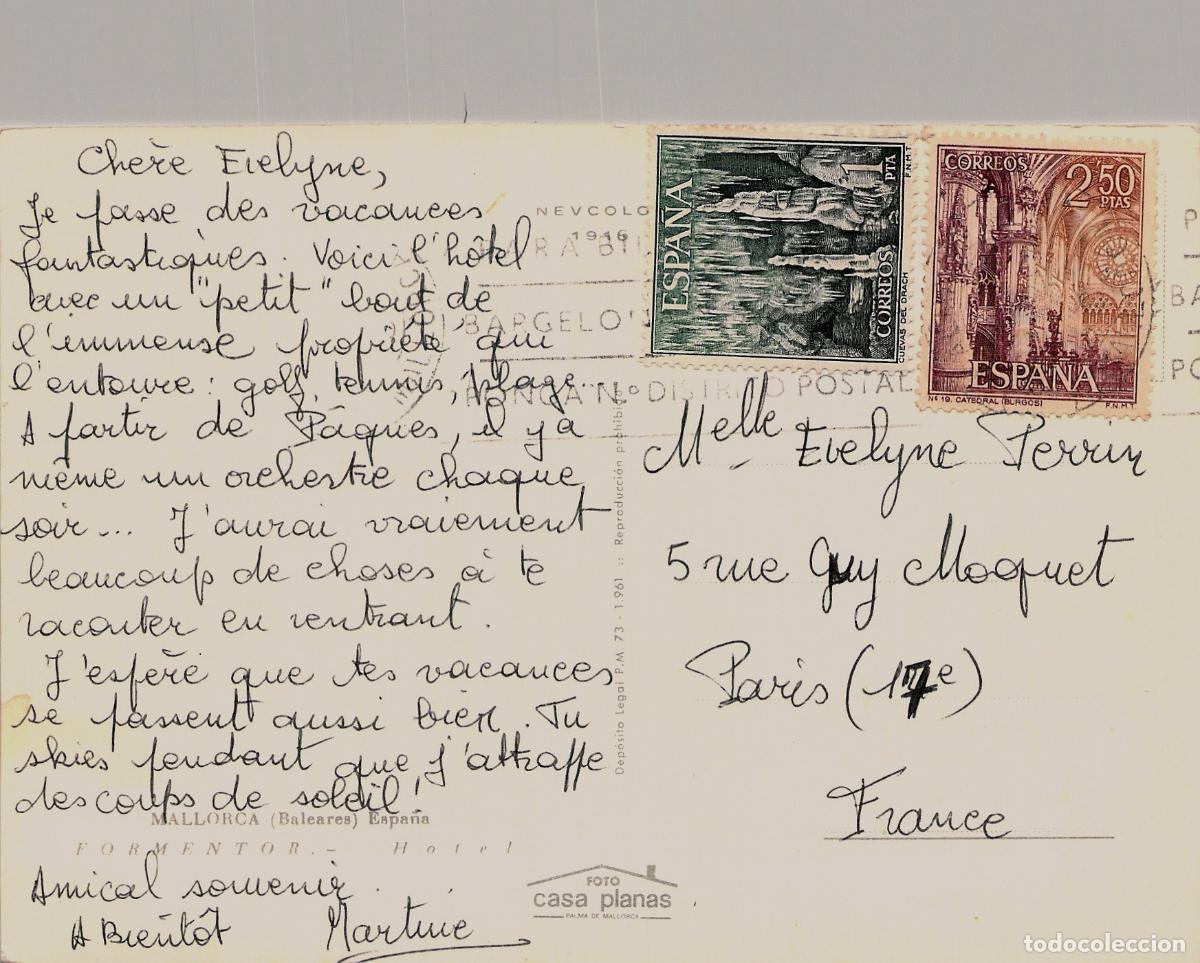 Chère Evelyne,
Je passe des vacances
fantastiques. Voici l'hôtel
avec un "petit" bout de
l'immense propriété qui
l'entoure : golf, tennis, plage...
A partir de Pâques, il y a
même un orchestre chaque
soir... J'aurai vraiement
beaucoup de choses à te
raconter en rentrant.
J'espère que tes vacances
se passent aussi bien. Tu
skies pendant que j'attrappe
des coups de soleil!
MALLORCA (Baleares) España
FORMENTOR.- Hotel
Amical souvenir.
A Bientôt Martine
Depósito Legal P.M. 73 - 1.961 :: Reproducción prohibida
NEVCOLO
1946
PARA BI
BARGELO
PONGA Nº DISTRITO POSTAL
P
BA
PO
ESPAÑA
1 PTA
CORREOS
CUEVAS DEL DRACH
F.N.M.T.
CORREOS
2,50
PTAS
ESPAÑA
Nº 19. CATEDRAL (BURGOS) F.N.M.T.
Melle Evelyne Perrin
5 rue Guy Moquet
Paris (17e)
France
FOTO
casa planas
PALMA DE MALLORCA
todocoleccion